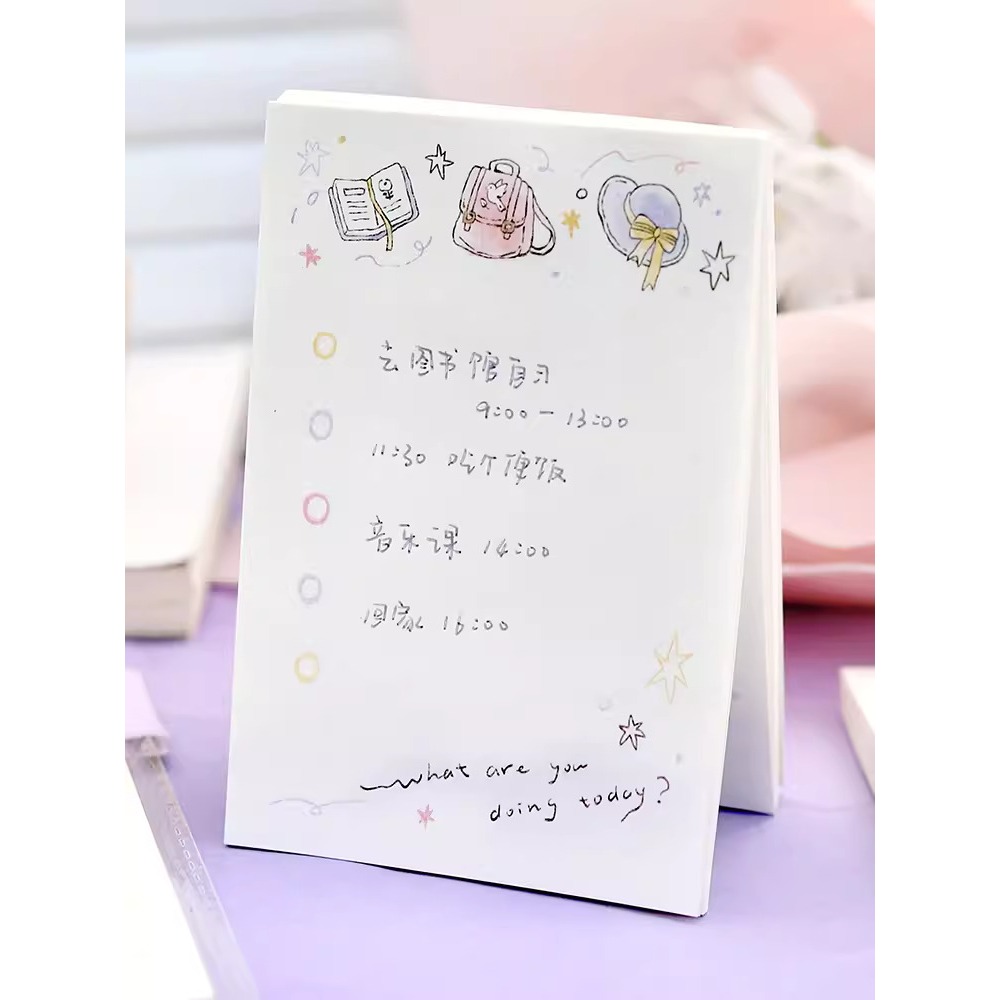 去图书馆自习
9:00-13:00
11:30 吃个便饭
音乐课 14:00
回家 16:00
what are you
doing today?